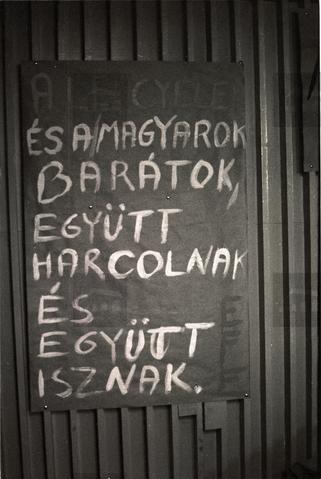 ÉS A MAGYAROK
BARÁTOK,
EGYÜTT
HARCOLNAK
ÉS
EGYÜTT
ISZNAK.